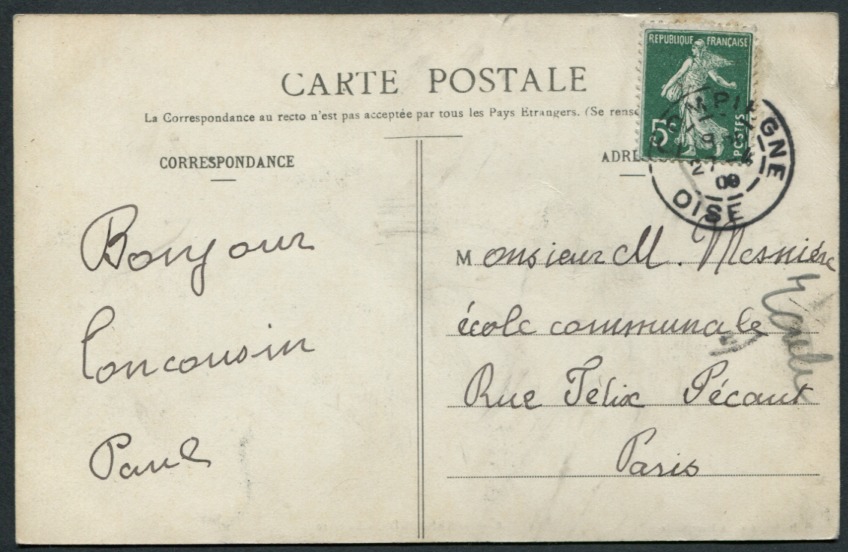 CARTE POSTALE
La Correspondance au recto n'est pas acceptée par tous les Pays Etrangers. (Se rens
CORRESPONDANCE
ADRE
REPUBLIQUE FRANÇAISE
5c
POSTES
COMPIEGNE
09
OISE
Bonjour
Ton cousin
Paul
Monsieur M. Mesnière
école communale
Rue Félix Pécaut
Paris